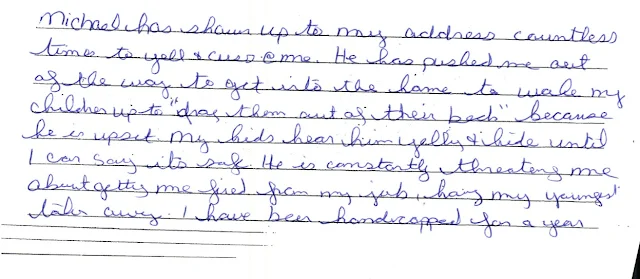 Michael has shown up to my address countless
times to yell & cuss @ me. He has pushed me out
of the way to get into the home to wake my
children up to "drag them out of their beds" because
he is upset. My kids hear him yelly & hide until
I can say its safe. He is constantly threateng me
about gettig me fired from my job, having my youngest
taken away. I have been handicapped for a year